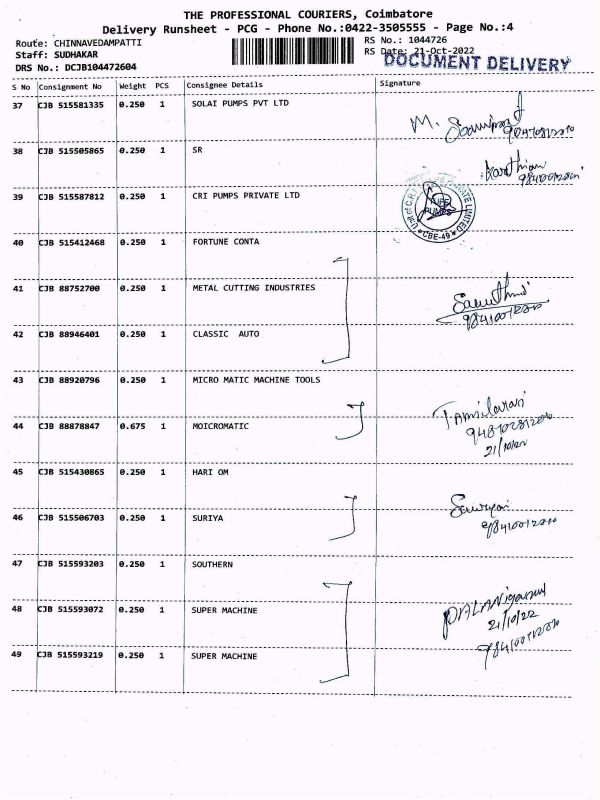 THE PROFESSIONAL COURIERS, Coimbatore
Delivery Runsheet - PCG - Phone No.:0422-3505555 - Page No.:4
Route: CHINNAVEDAMPATTI
RS No.: 1044726
Staff: SUDHAKAR
RS Date: 21-Oct-2022
DOCUMENT DELIVERY
DRS No.: DCJB104472604
S No Consignment No Weight PCS Consignee Details Signature
37 CJB 515581335 0.250 1 SOLAI PUMPS PVT LTD
M.
38 CJB 515505865 0.250 1 SR
39 CJB 515587812 0.250 1 CRI PUMPS PRIVATE LTD
PUMPS
CBE-49
40 CJB 515412468 0.250 1 FORTUNE CONTA
41 CJB 88752700 0.250 1 METAL CUTTING INDUSTRIES
42 CJB 88946401 0.250 1 CLASSIC AUTO
43 CJB 88920796 0.250 1 MICRO MATIC MACHINE TOOLS
44 CJB 88878847 0.675 1 MOICROMATIC
45 CJB 515430865 0.250 1 HARI OM
46 CJB 515506703 0.250 1 SURIYA
47 CJB 515593203 0.250 1 SOUTHERN
48 CJB 515593072 0.250 1 SUPER MACHINE
21/10/22
49 CJB 515593219 0.250 1 SUPER MACHINE